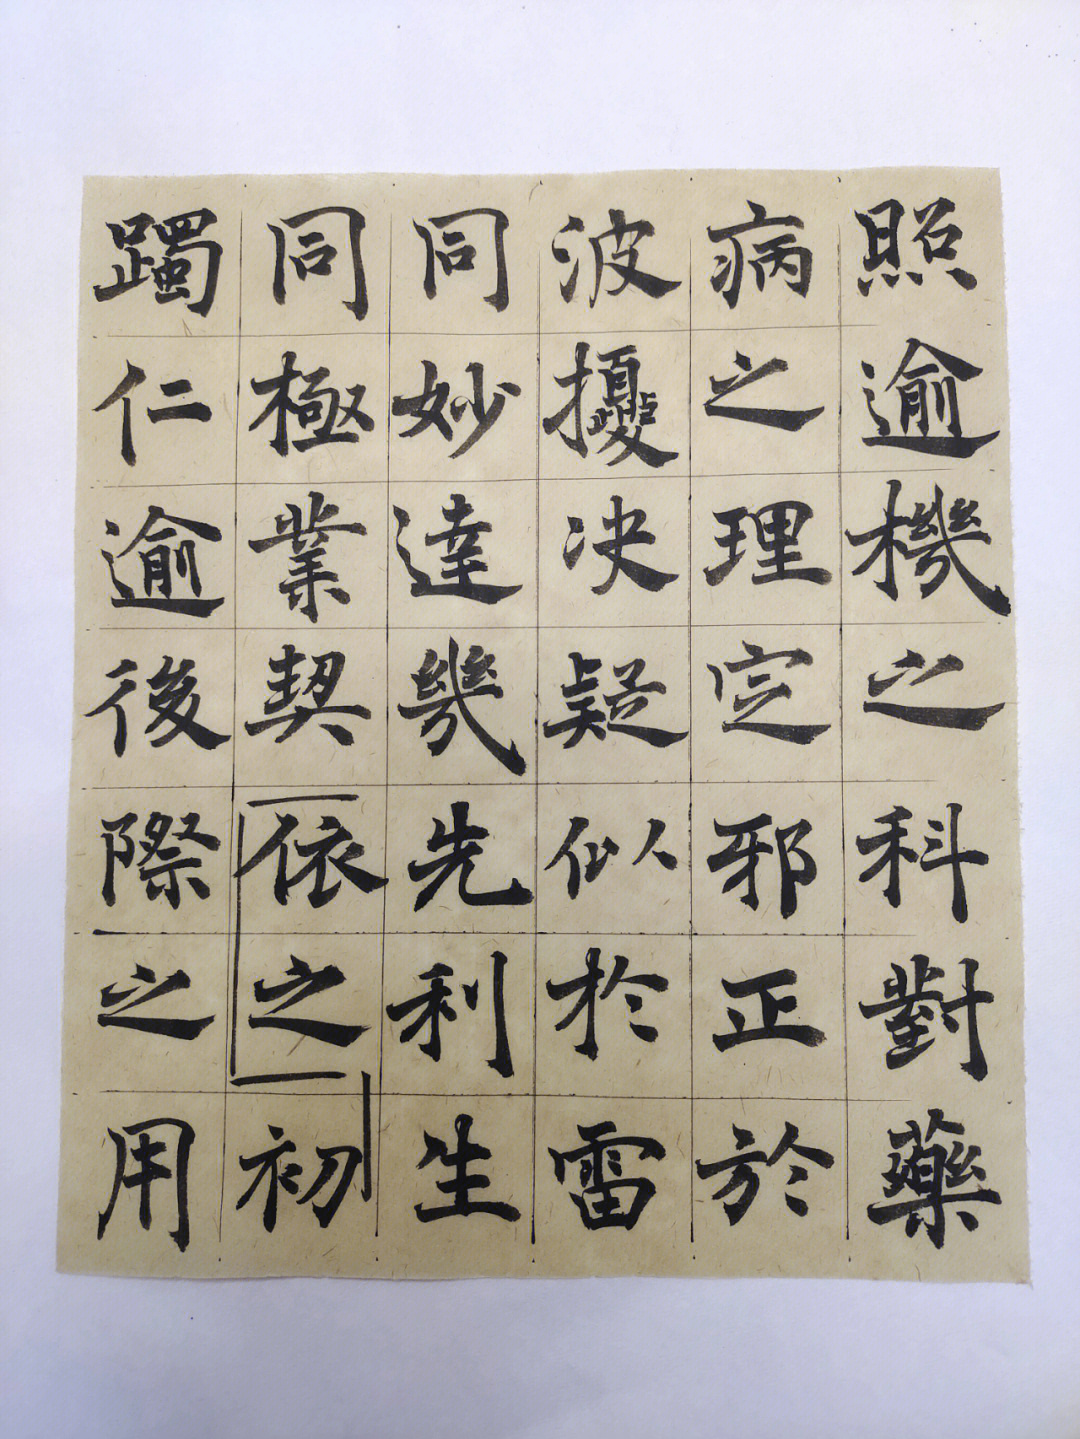 照逾機之科對藥
病之理定邪正於
波擾决疑似人於雷
同妙達幾先利生
同極業契依之初
躅仁逾後際之用